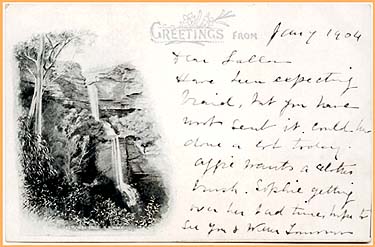 GREETINGS FROM
Jany 1904
Dear
Have been expecting
braid, but you have
not sent it. could have
done a lot today.
Affie wants a clothes
brush. Sophie getting
over her bad time, hope to
See you &